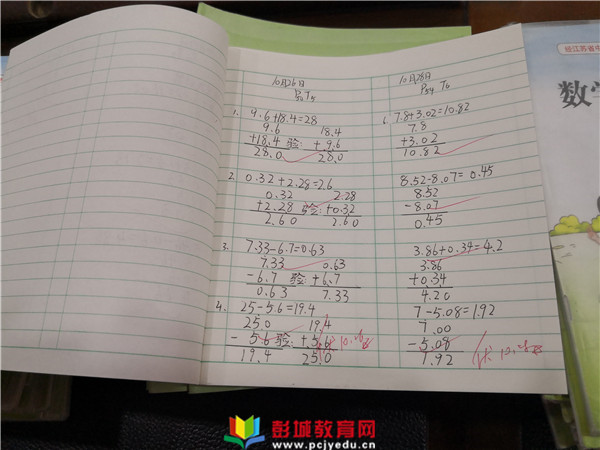 10月26日
P50 T5
1. 9.6+18.4=28
9.6 18.4
+18.4 验: +9.6
28.0 28.0
2. 0.32+2.28=2.6
0.32 2.28
+2.28 验: +0.32
2.60 2.60
3. 7.33-6.7=0.63
7.33 0.63
-6.7 验 +6.7
0.63 7.33
4. 25-5.6=19.4
25.0 19.4
- 5.6 验: +5.6
19.4 25.0
10月28日
P54 T6
7.8+3.02=10.82
7.8
+3.02
10.82
8.52-8.07=0.45
8.52
-8.07
0.45
3.86+0.34=4.2
3.86
+0.34
4.20
7-5.08=1.92
7.00
-5.08
1.92
优 10.28
经江苏省中
数学
彭城教育网
www.pcjyedu.cn